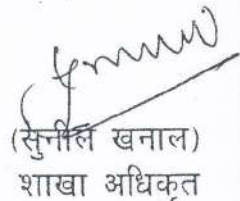 (सुनील खनाल)
शाखा अधिकृत